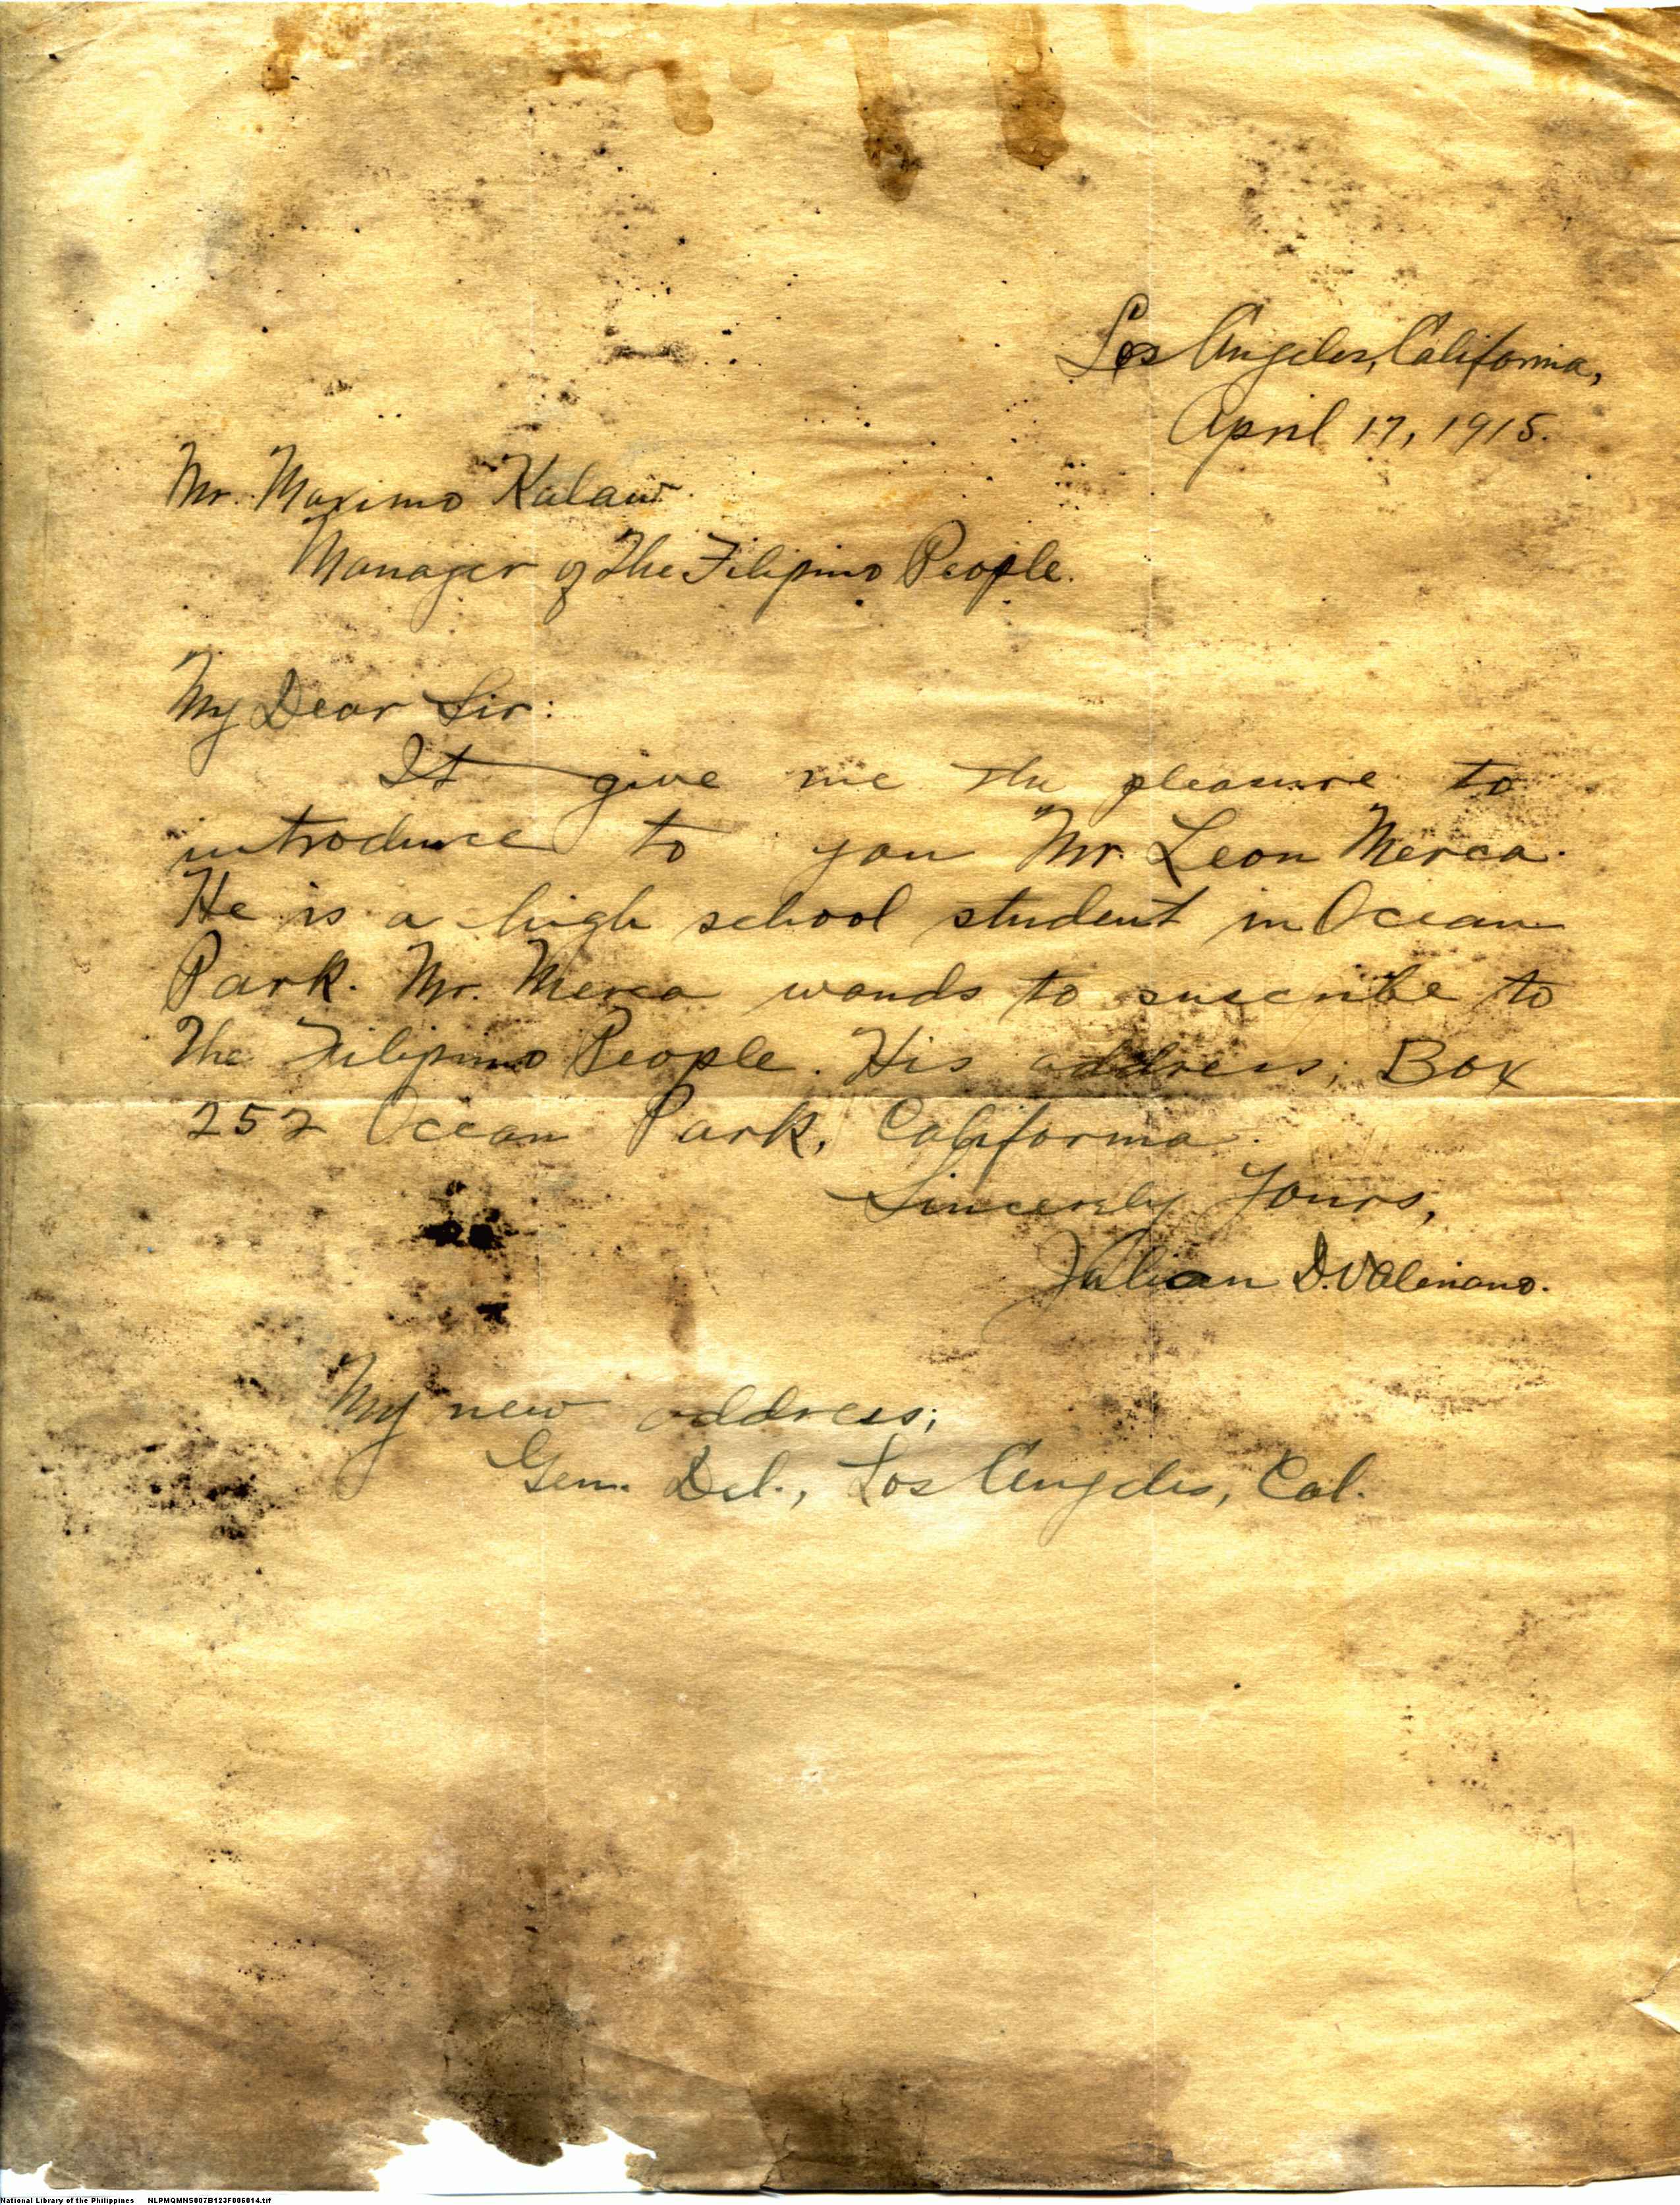 Los Angeles, California,
April 17, 1915.
Mr. Maximo Kalaw.
Manager of The Filipino People.
My Dear Sir:
It give me the pleasure to
introduce to you Mr. Leon Merca.
He is a high school student in Ocean
Park. Mr. Merca wands to suscribe to
The Filipino People. His address; Box
252 Ocean Park, California.
Sincerely Yours,
Julian D. Valeriano.
My new address;
Gen. Del., Los Angeles, Cal.
National Library of the Philippines NLPMQMNS007B123F006014.tif